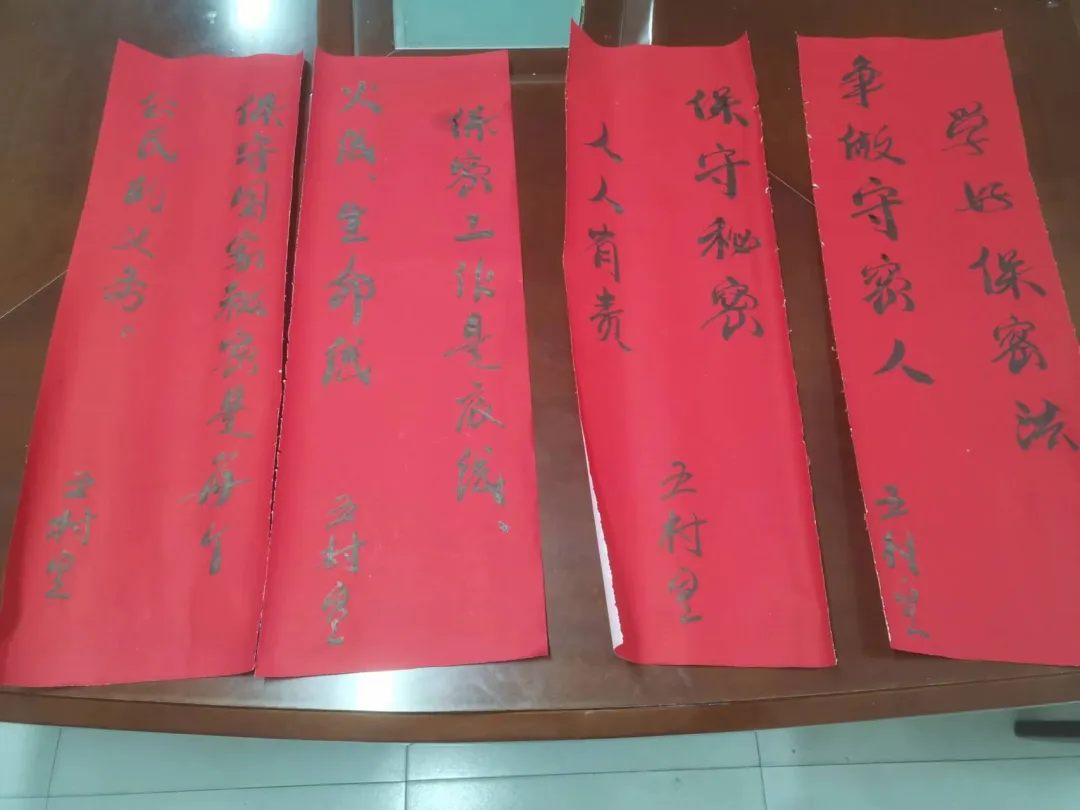 学好保密法
争做守密人
王村里
保守秘密
人人有责
王村里
保密工作是底线、
火线、生命线
王村里
保守国家秘密是每个
公民的义务。
王村里